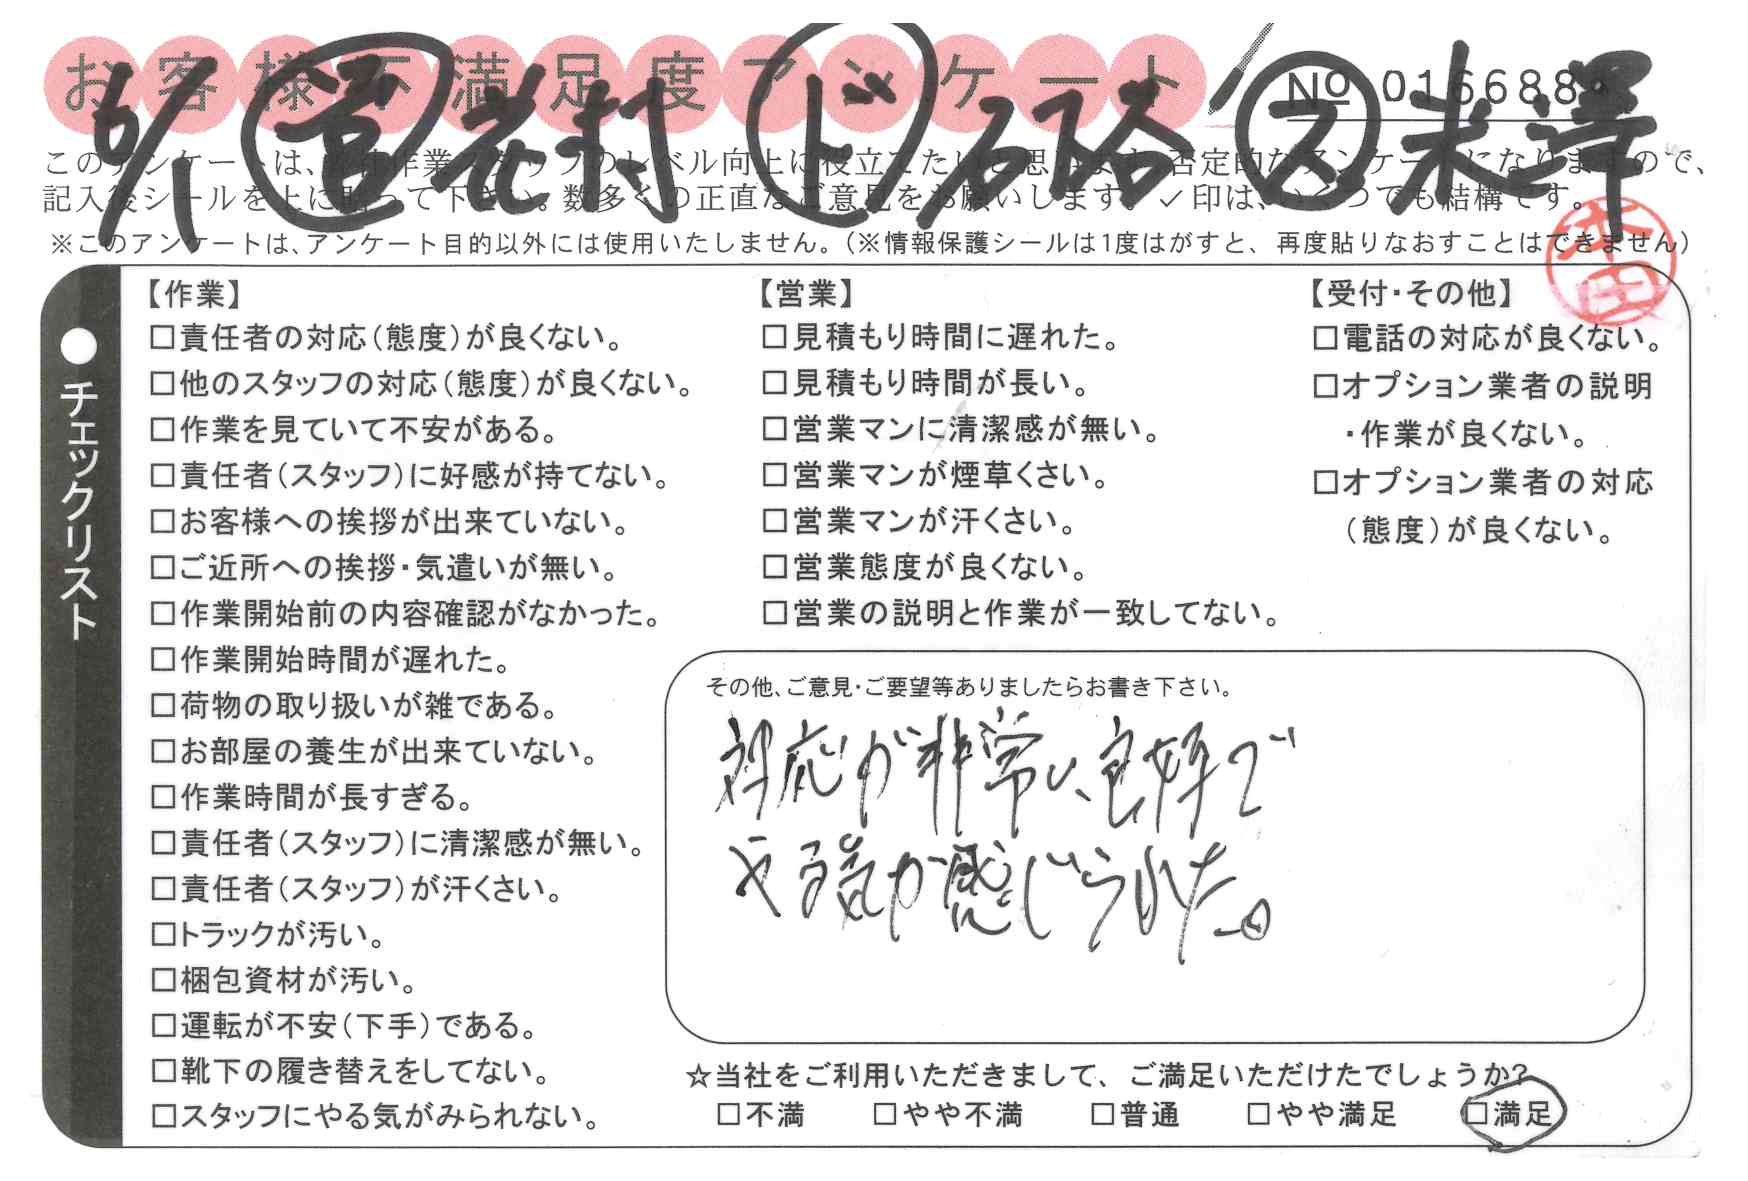 お客様不満足度アンケート
No 016688
6/1 営 花村 ド 名路 ス 米澤
このアンケートは、弊社作業スタッフのレベル向上に役立てたいと思います。否定的なアンケートになりますので、
記入後シールを上に貼って下さい。数多くの正直なご意見をお願いします。✓印は、いくつでも結構です。
※このアンケートは、アンケート目的以外には使用いたしません。（※情報保護シールは1度はがすと、再度貼りなおすことはできません）
本田
●チェックリスト
【作業】
□責任者の対応（態度）が良くない。
□他のスタッフの対応（態度）が良くない。
□作業を見ていて不安がある。
□責任者（スタッフ）に好感が持てない。
□お客様への挨拶が出来ていない。
□ご近所への挨拶・気遣いが無い。
□作業開始前の内容確認がなかった。
□作業開始時間が遅れた。
□荷物の取り扱いが雑である。
□お部屋の養生が出来ていない。
□作業時間が長すぎる。
□責任者（スタッフ）に清潔感が無い。
□責任者（スタッフ）が汗くさい。
□トラックが汚い。
□梱包資材が汚い。
□運転が不安（下手）である。
□靴下の履き替えをしてない。
□スタッフにやる気がみられない。
【営業】
□見積もり時間に遅れた。
□見積もり時間が長い。
□営業マンに清潔感が無い。
□営業マンが煙草くさい。
□営業マンが汗くさい。
□営業態度が良くない。
□営業の説明と作業が一致してない。
【受付・その他】
□電話の対応が良くない。
□オプション業者の説明
・作業が良くない。
□オプション業者の対応
（態度）が良くない。
その他、ご意見・ご要望等ありましたらお書き下さい。
対応が非常に良好で
やる気が感じられた。
☆当社をご利用いただきまして、ご満足いただけたでしょうか?
□不満 □やや不満 □普通 □やや満足 □満足